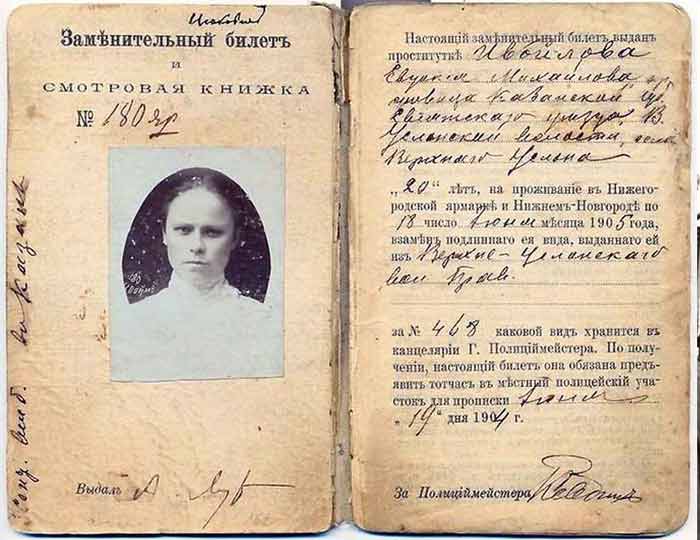 Замѣнительный билетъ
и
СМОТРОВАЯ КНИЖКА
№ 180 яр
Выдалъ
въ Казань
Настоящій замѣнительный билетъ выданъ
проституткѣ Ивойлова
Евдокія Михайлова кр
Казанской губ
уѣзда, В
Услонской волости, села
Верхняго Услона
„20“ лѣтъ, на проживаніе въ Нижего-
родской ярмаркѣ и Нижнемъ-Новгородѣ по
18 число Іюня мѣсяца 1905 года,
взамѣнъ подлиннаго ея вида, выданнаго ей
изъ Верхне-Услонскаго
вол Прав.
за № 468 каковой видъ хранится въ
канцеляріи Г. Полиціймейстера. По полу-
ченіи, настоящій билетъ она обязана предъ-
явить тотчасъ въ мѣстный полицейскій уча-
стокъ для прописки Іюня
„19“ дня 1904 г.
За Полиціймейстера